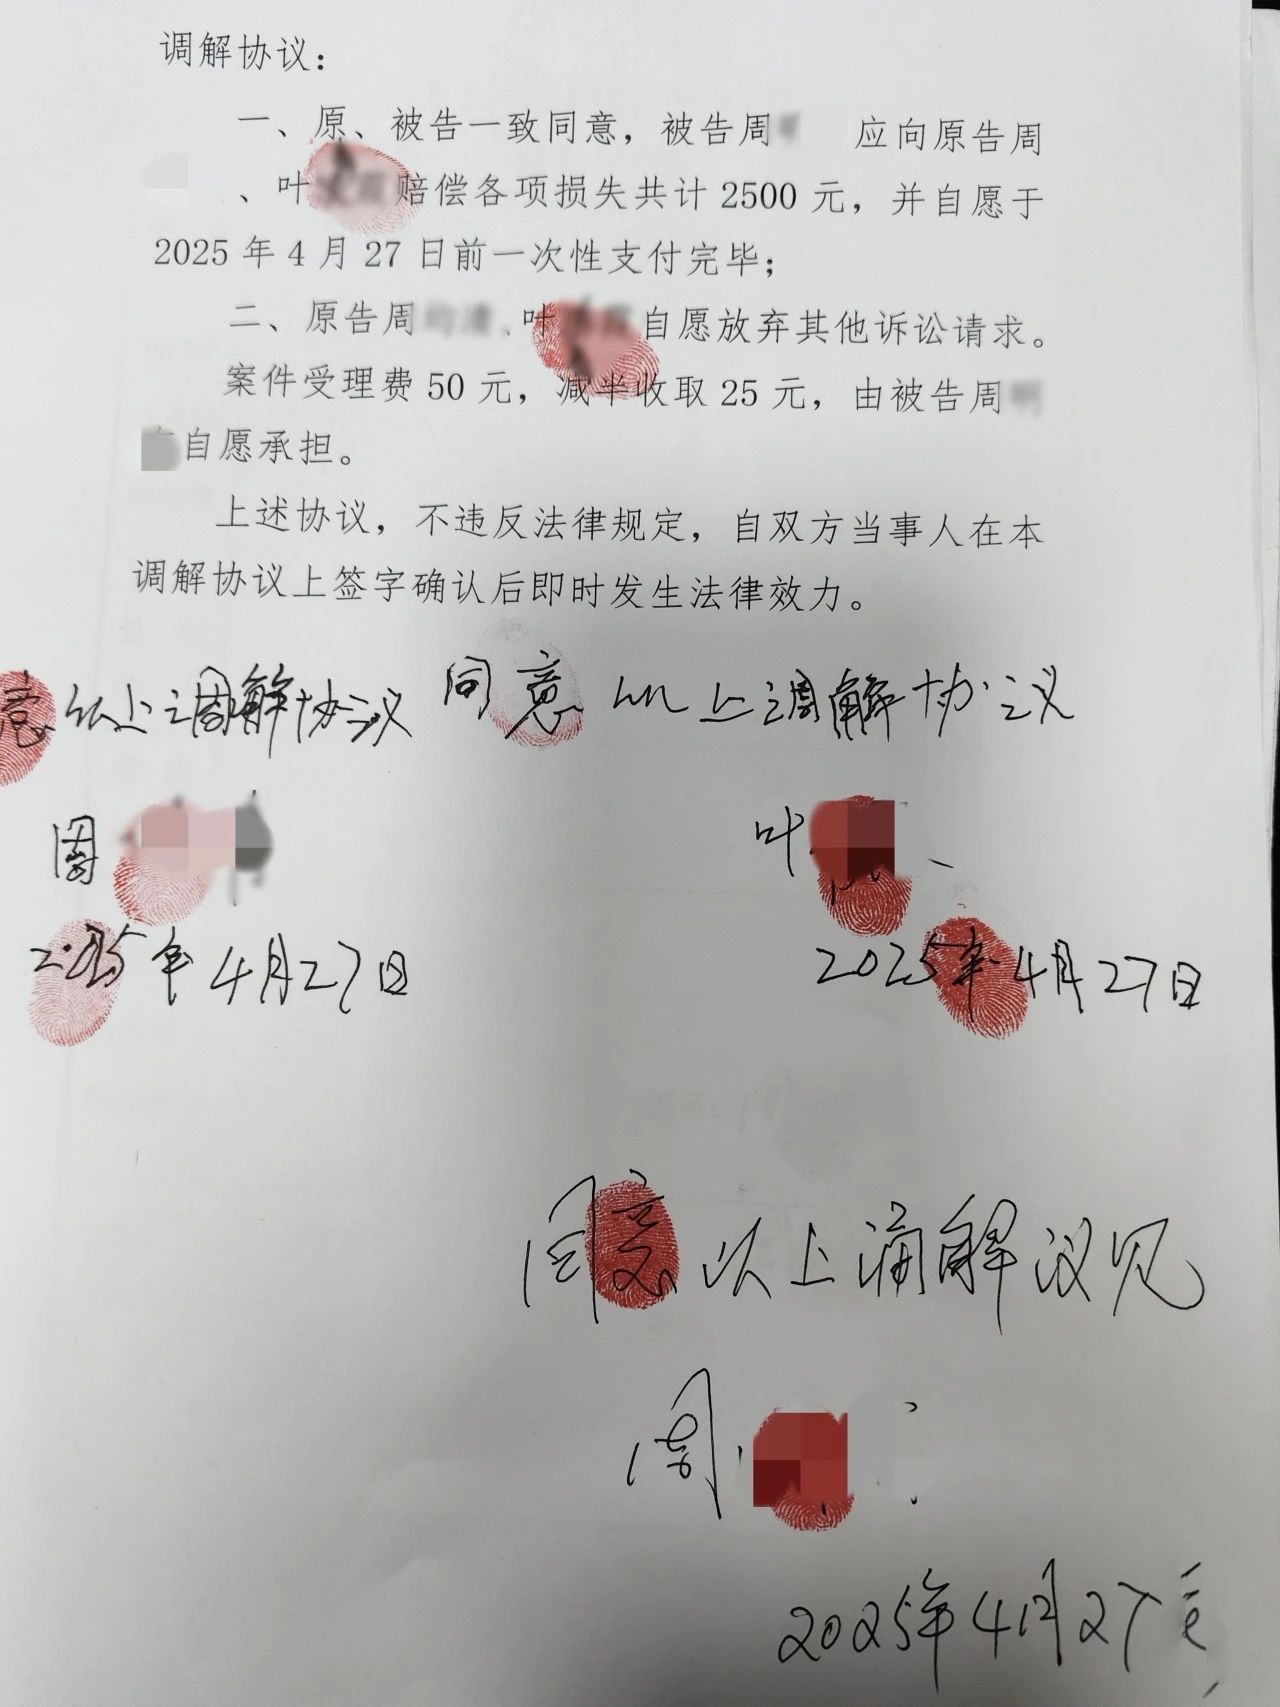 调解协议：
一、原、被告一致同意，被告周 应向原告周
、叶 赔偿各项损失共计 2500 元，并自愿于
2025 年 4 月 27 日前一次性支付完毕；
二、原告周 、叶 自愿放弃其他诉讼请求。
案件受理费 50 元，减半收取 25 元，由被告周
自愿承担。
上述协议，不违反法律规定，自双方当事人在本
调解协议上签字确认后即时发生法律效力。
意以上调解协议 同意以上调解协议
周 叶
2025年4月27日 2025年4月27日
同意以上调解议见
周
2025年4月27